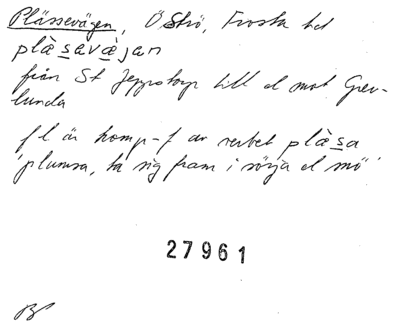 Plässevägen, Ö Strö, Frosta hd
plà̱savæ̀jan
från St Jeppstorp till el mot Grev-
lunda
f l är komp-f av verbet plà̱sa
'plumsa, ta sig fram i sörja el snö'
27961